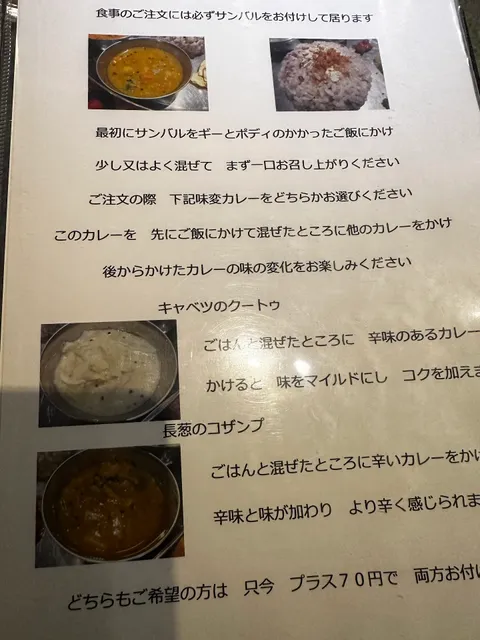 食事のご注文には必ずサンバルをお付けして居ります
最初にサンバルをギーとポディのかかったご飯にかけ
少し又はよく混ぜて　まず一口お召し上がりください
ご注文の際　下記味変カレーをどちらかお選びください
このカレーを　先にご飯にかけて混ぜたところに他のカレーをかけ
後からかけたカレーの味の変化をお楽しみください
キャベツのクートゥ
ごはんと混ぜたところに　辛味のあるカレー
かけると　味をマイルドにし　コクを加えま
長葱のコザンプ
ごはんと混ぜたところに辛いカレーをか
辛味と味が加わり　より辛く感じられま
どちらもご希望の方は　只今　プラス７０円で　両方お付け